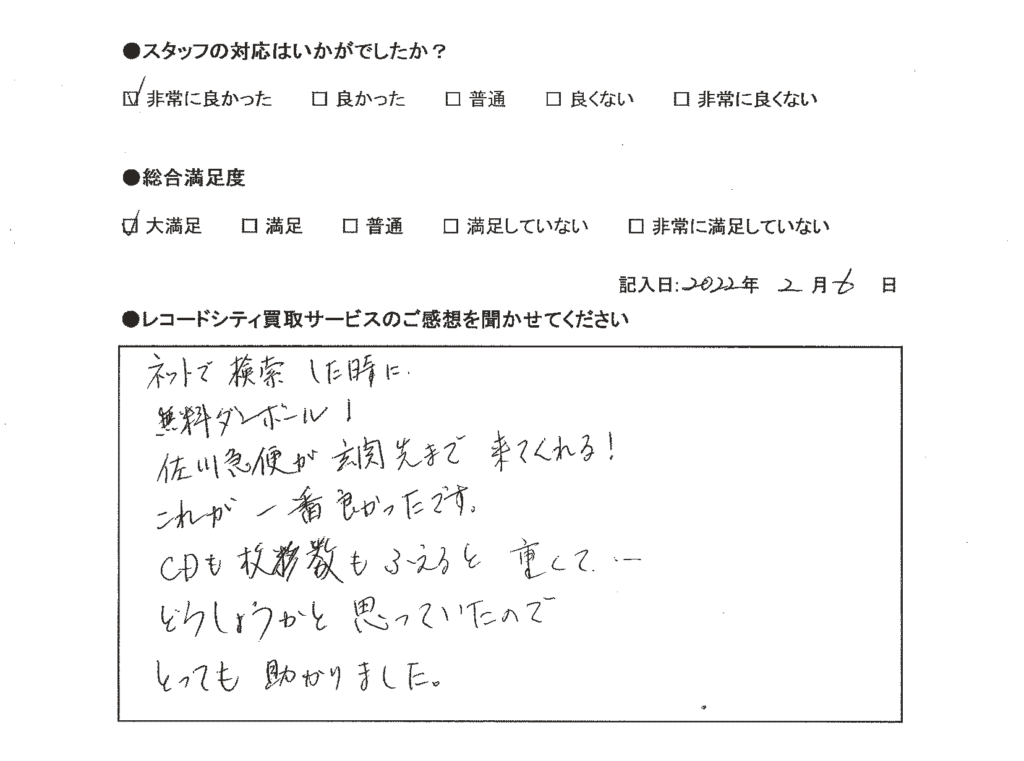 ●スタッフの対応はいかがでしたか？
☑ 非常に良かった □ 良かった □ 普通 □ 良くない □ 非常に良くない
●総合満足度
☑ 大満足 □ 満足 □ 普通 □ 満足していない □ 非常に満足していない
記入日:2022年 2 月 6 日
●レコードシティ買取サービスのご感想を聞かせてください
ネットで検索した時に
無料ダンボール！
佐川急便が玄関先まで来てくれる！
これが一番良かったです。
CDも枚数もふえると重くて…
どうしようかと思っていたので
とっても助かりました。